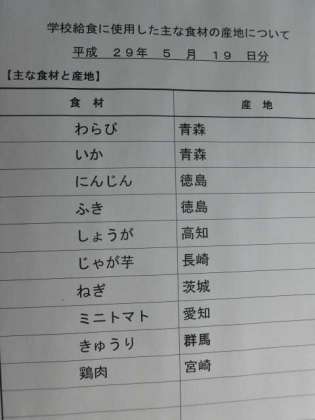 学校給食に使用した主な食材の産地について
平成 29年 5 月 19 日分
【主な食材と産地】
食 材 産 地
わらび 青森
いか 青森
にんじん 徳島
ふき 徳島
しょうが 高知
じゃが芋 長崎
ねぎ 茨城
ミニトマト 愛知
きゅうり 群馬
鶏肉 宮崎